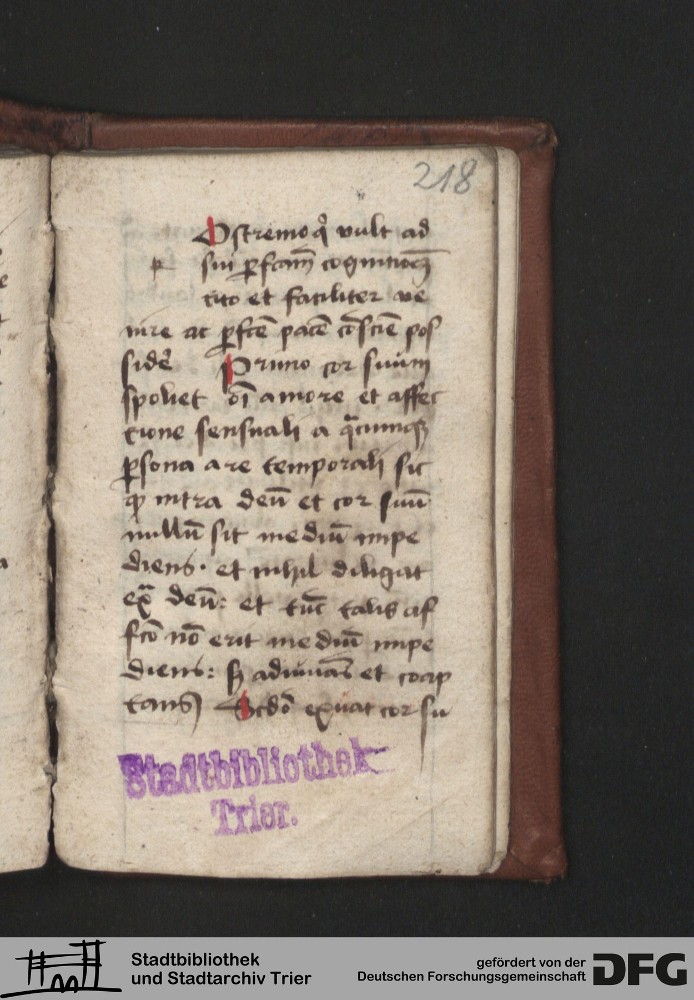 218
Ostremo qͥ vult ad
p sui ꝑfcam̄ cognicioēꝫ
cito et faciliter ve
nire ac ꝑfcē pacē cōsciē pos
sidē Primo cor suum
spoliet oī amore et affec
cione sensuali a qͣcumqꝫ
ꝑsona a re temporali sic
qꝫ intra deū et cor suū
nullū sit mediū impe
diens. et nihil diligat
exͣ deū: et tūc talis af
fcō nō erit mediū impe
diens: sꝫ adiuuās et coap
tans) Scdō exuat cor su
Stadtbibliothek
Trier.
Stadtbibliothek
und Stadtarchiv Trier
gefördert von der
Deutschen Forschungsgemeinschaft
DFG